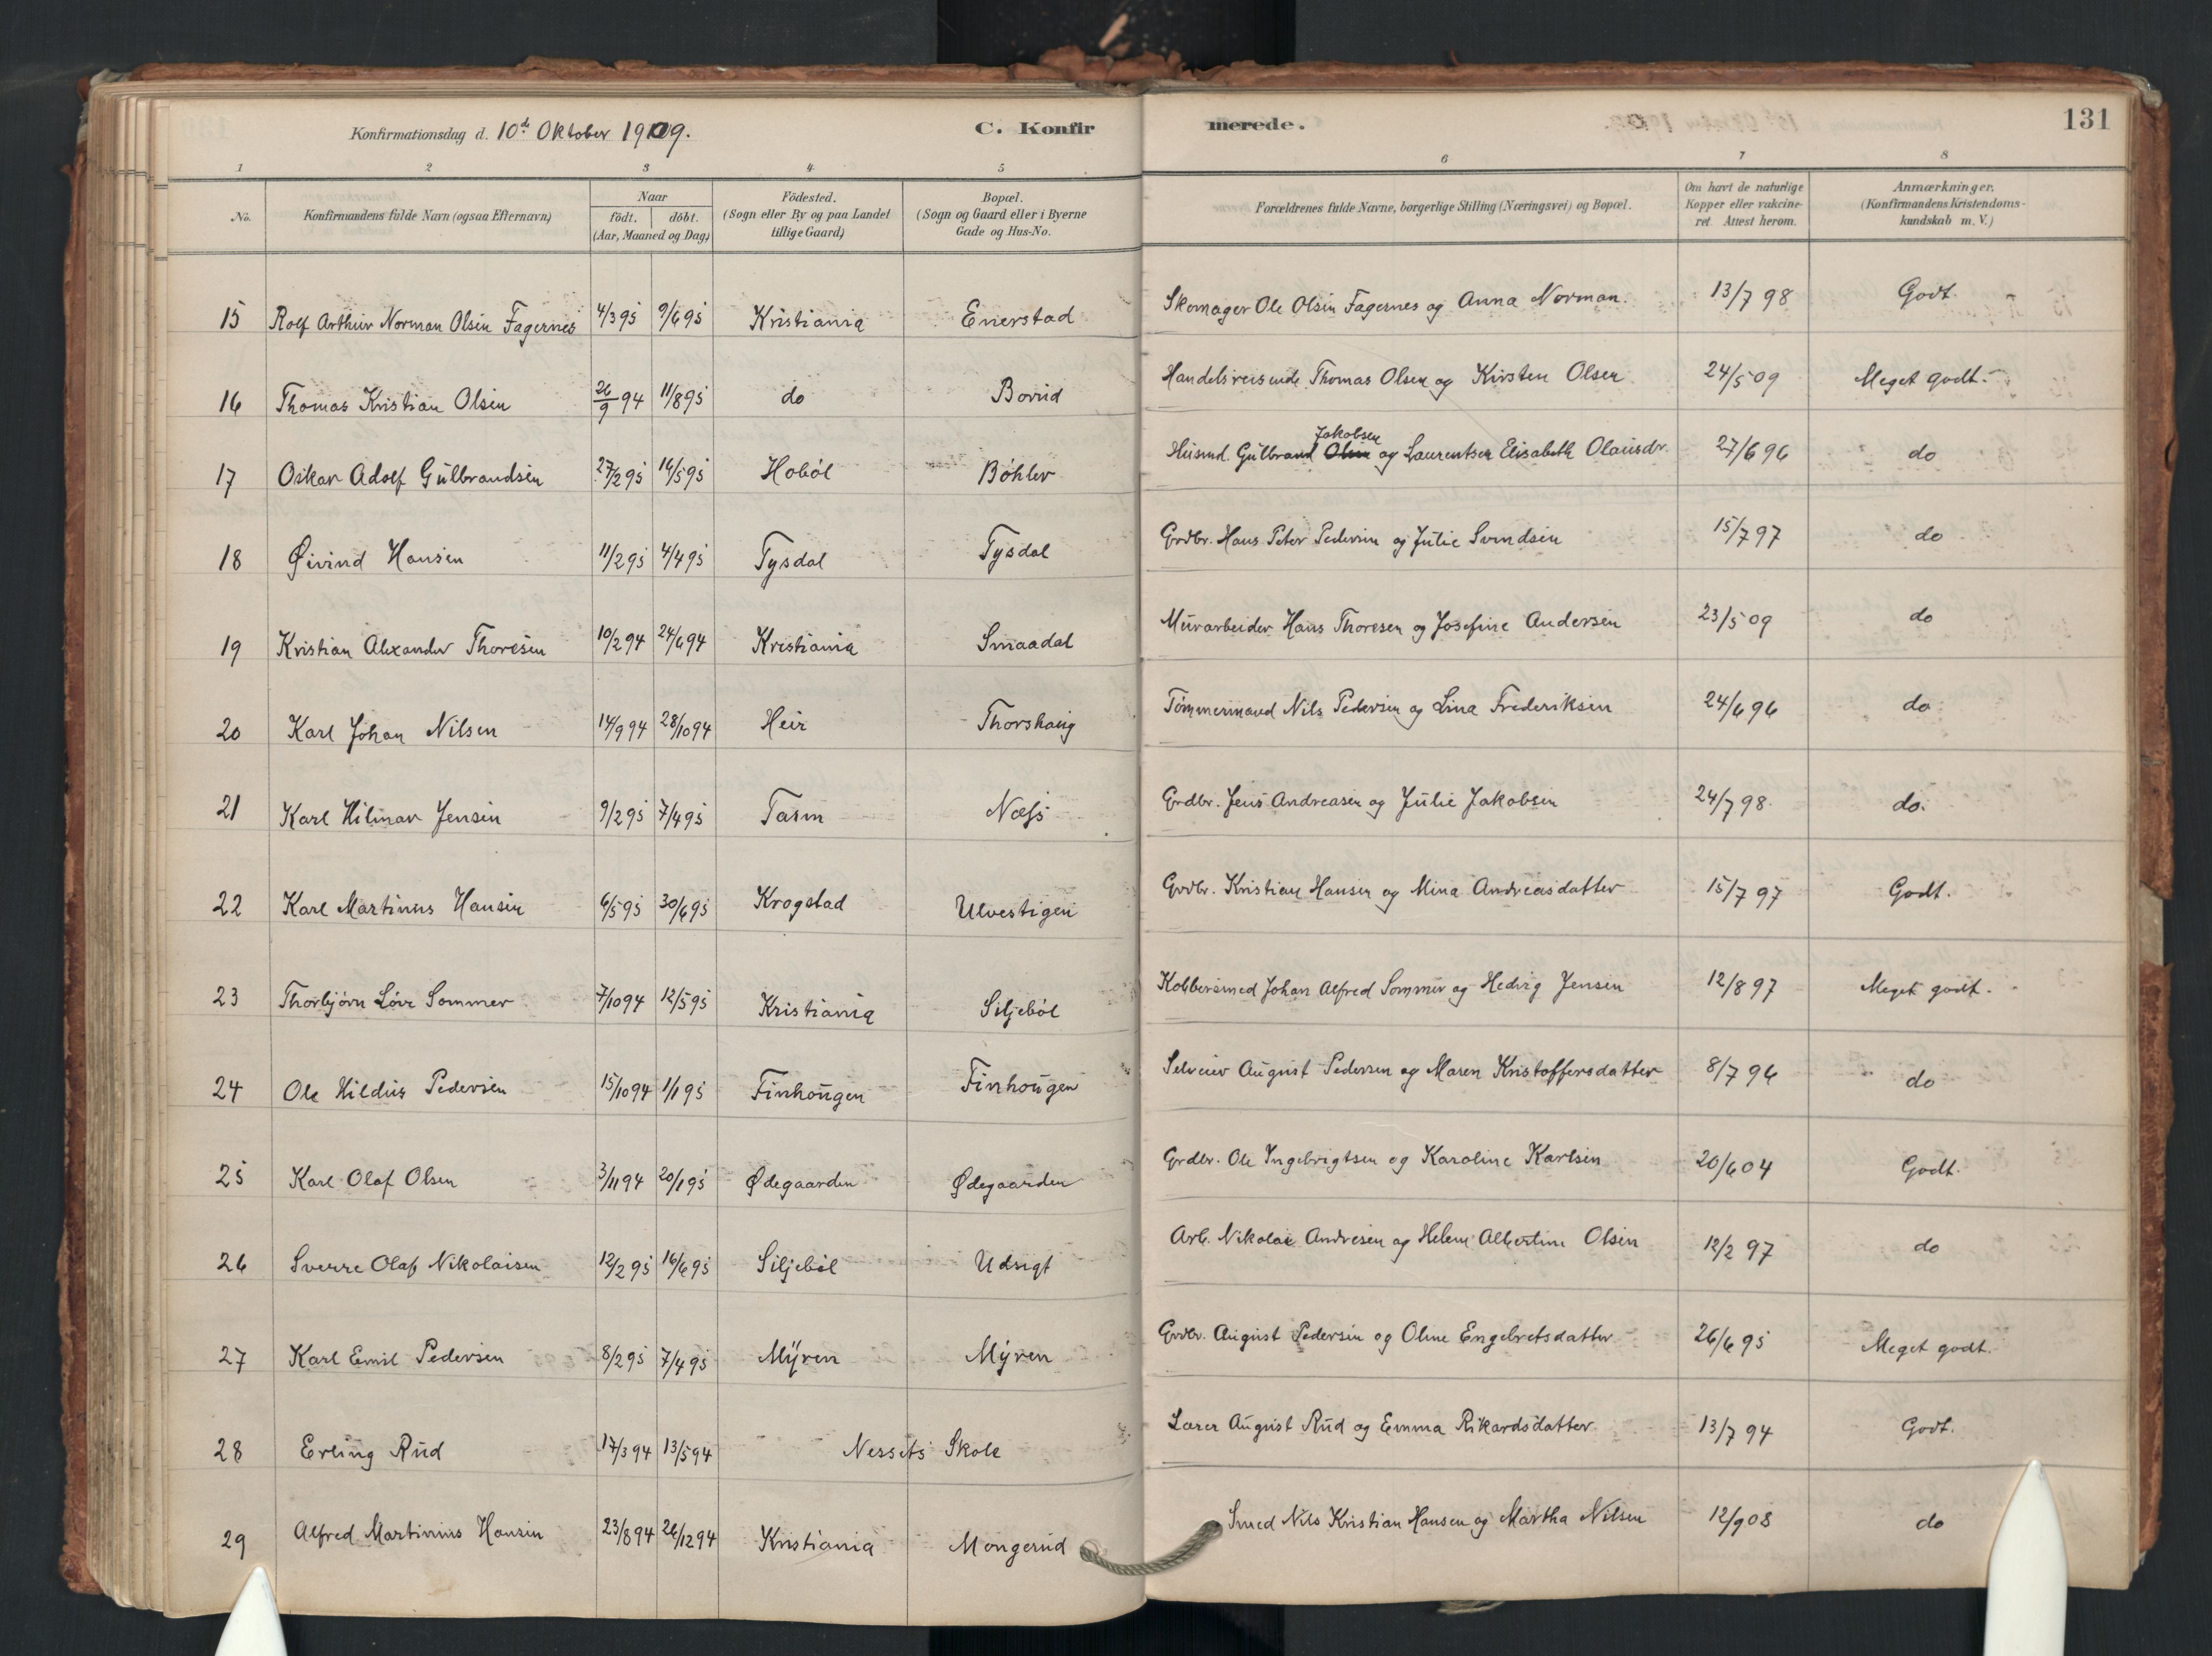 Konfirmationsdag d. 10de Oktober 1909.
C. Konfirmerede.
131
1 2 3 4 5 6 7 8
No.
Konfirmandens fulde Navn (ogsaa Efternavn)
Naar
födt. döbt.
(Aar, Maaned og Dag)
Födested.
(Sogn eller By og paa Landet
tillige Gaard)
Bopæl.
(Sogn og Gaard eller i Byerne
Gade og Hus-No.
Forældrenes fulde Navne, borgerlige Stilling (Næringsvei) og Bopæl.
Om havt de naturlige
Kopper eller vakcine-
ret. Attest herom.
Anmærkninger.
(Konfirmandens Kristendoms-
kundskab m. V.)
15 Rolf Arthur Norman Olsen Fagernes 4/3 95 9/6 95 Kristiania Enerstad Skomager Ole Olsen Fagernes og Anna Norman. 13/7 98 Godt.
16 Thomas Kristian Olsen 26/9 94 11/8 95 do Borud Handelsreisende Thomas Olsen og Kirsten Olsen 24/5 09 Meget godt.
17 Oskar Adolf Gulbrandsen 27/2 95 16/5 95 Hoböl Böhler Husmd. Gulbrand Olsen Jakobsen og Laurentse Elisabeth Olausdr. 27/6 96 do
18 Øivind Hansen 11/2 95 4/4 95 Tysdal Tysdal Grdbr. Hans Peter Pedersen og Julie Svendsen 15/7 97 do
19 Kristian Alexander Thoresen 10/2 94 24/6 94 Kristiania Smaadal Murarbeider Hans Thoresen og Josefine Andersen 23/5 09 do
20 Karl Johan Nilsen 14/9 94 28/10 94 Heir Thorshaug Tömmermand Nils Pedersen og Lina Frederiksen 24/6 96 do
21 Karl Hilmar Jensen 9/2 95 7/4 95 Tasm Næss Grdbr. Jens Andreasen og Julie Jakobsen 24/7 98. do.
22 Karl Martinus Hansen 6/5 95 30/6 95 Krogstad Ulvestigen Grdbr. Kristian Hansen og Mina Andreasdatter 15/7 97 Godt.
23 Thorbjörn Löve Sommer 7/10 94 12/5 95 Kristiania Siljeböl Kobbersmed Johan Alfred Sommer og Hedvig Jensen 12/8 97 Meget godt.
24 Ole Hildus Pedersen 15/10 94 1/1 95 Finhougen Finhougen Selveier August Pedersen og Maren Kristoffersdatter 8/7 96 do
25 Karl Olaf Olsen 3/11 94 20/1 95 Ødegaarden Ødegaarden Grdbr. Ole Ingebrigtsen og Karoline Karlsen 20/6 04 Godt.
26 Sverre Olaf Nikolaisen 12/2 95 16/6 95 Siljeböl Udsigt Arb. Nikolai Andresen og Helene Albertine Olsen 12/2 97 do
27 Karl Emil Pedersen 8/2 95 7/4 95 Myren Myren Grdbr. August Pedersen og Oline Engebretsdatter 26/6 95 Meget godt.
28 Erling Rud 17/3 94 13/5 94 Nessets Skole Lærer August Rud og Emma Rikardsdatter 13/7 94 Godt.
29 Alfred Martinius Hansen 23/8 94 26/12 94 Kristiania Mongerud Smed Nils Kristian Hansen og Martha Nilsen 12/9 08 do